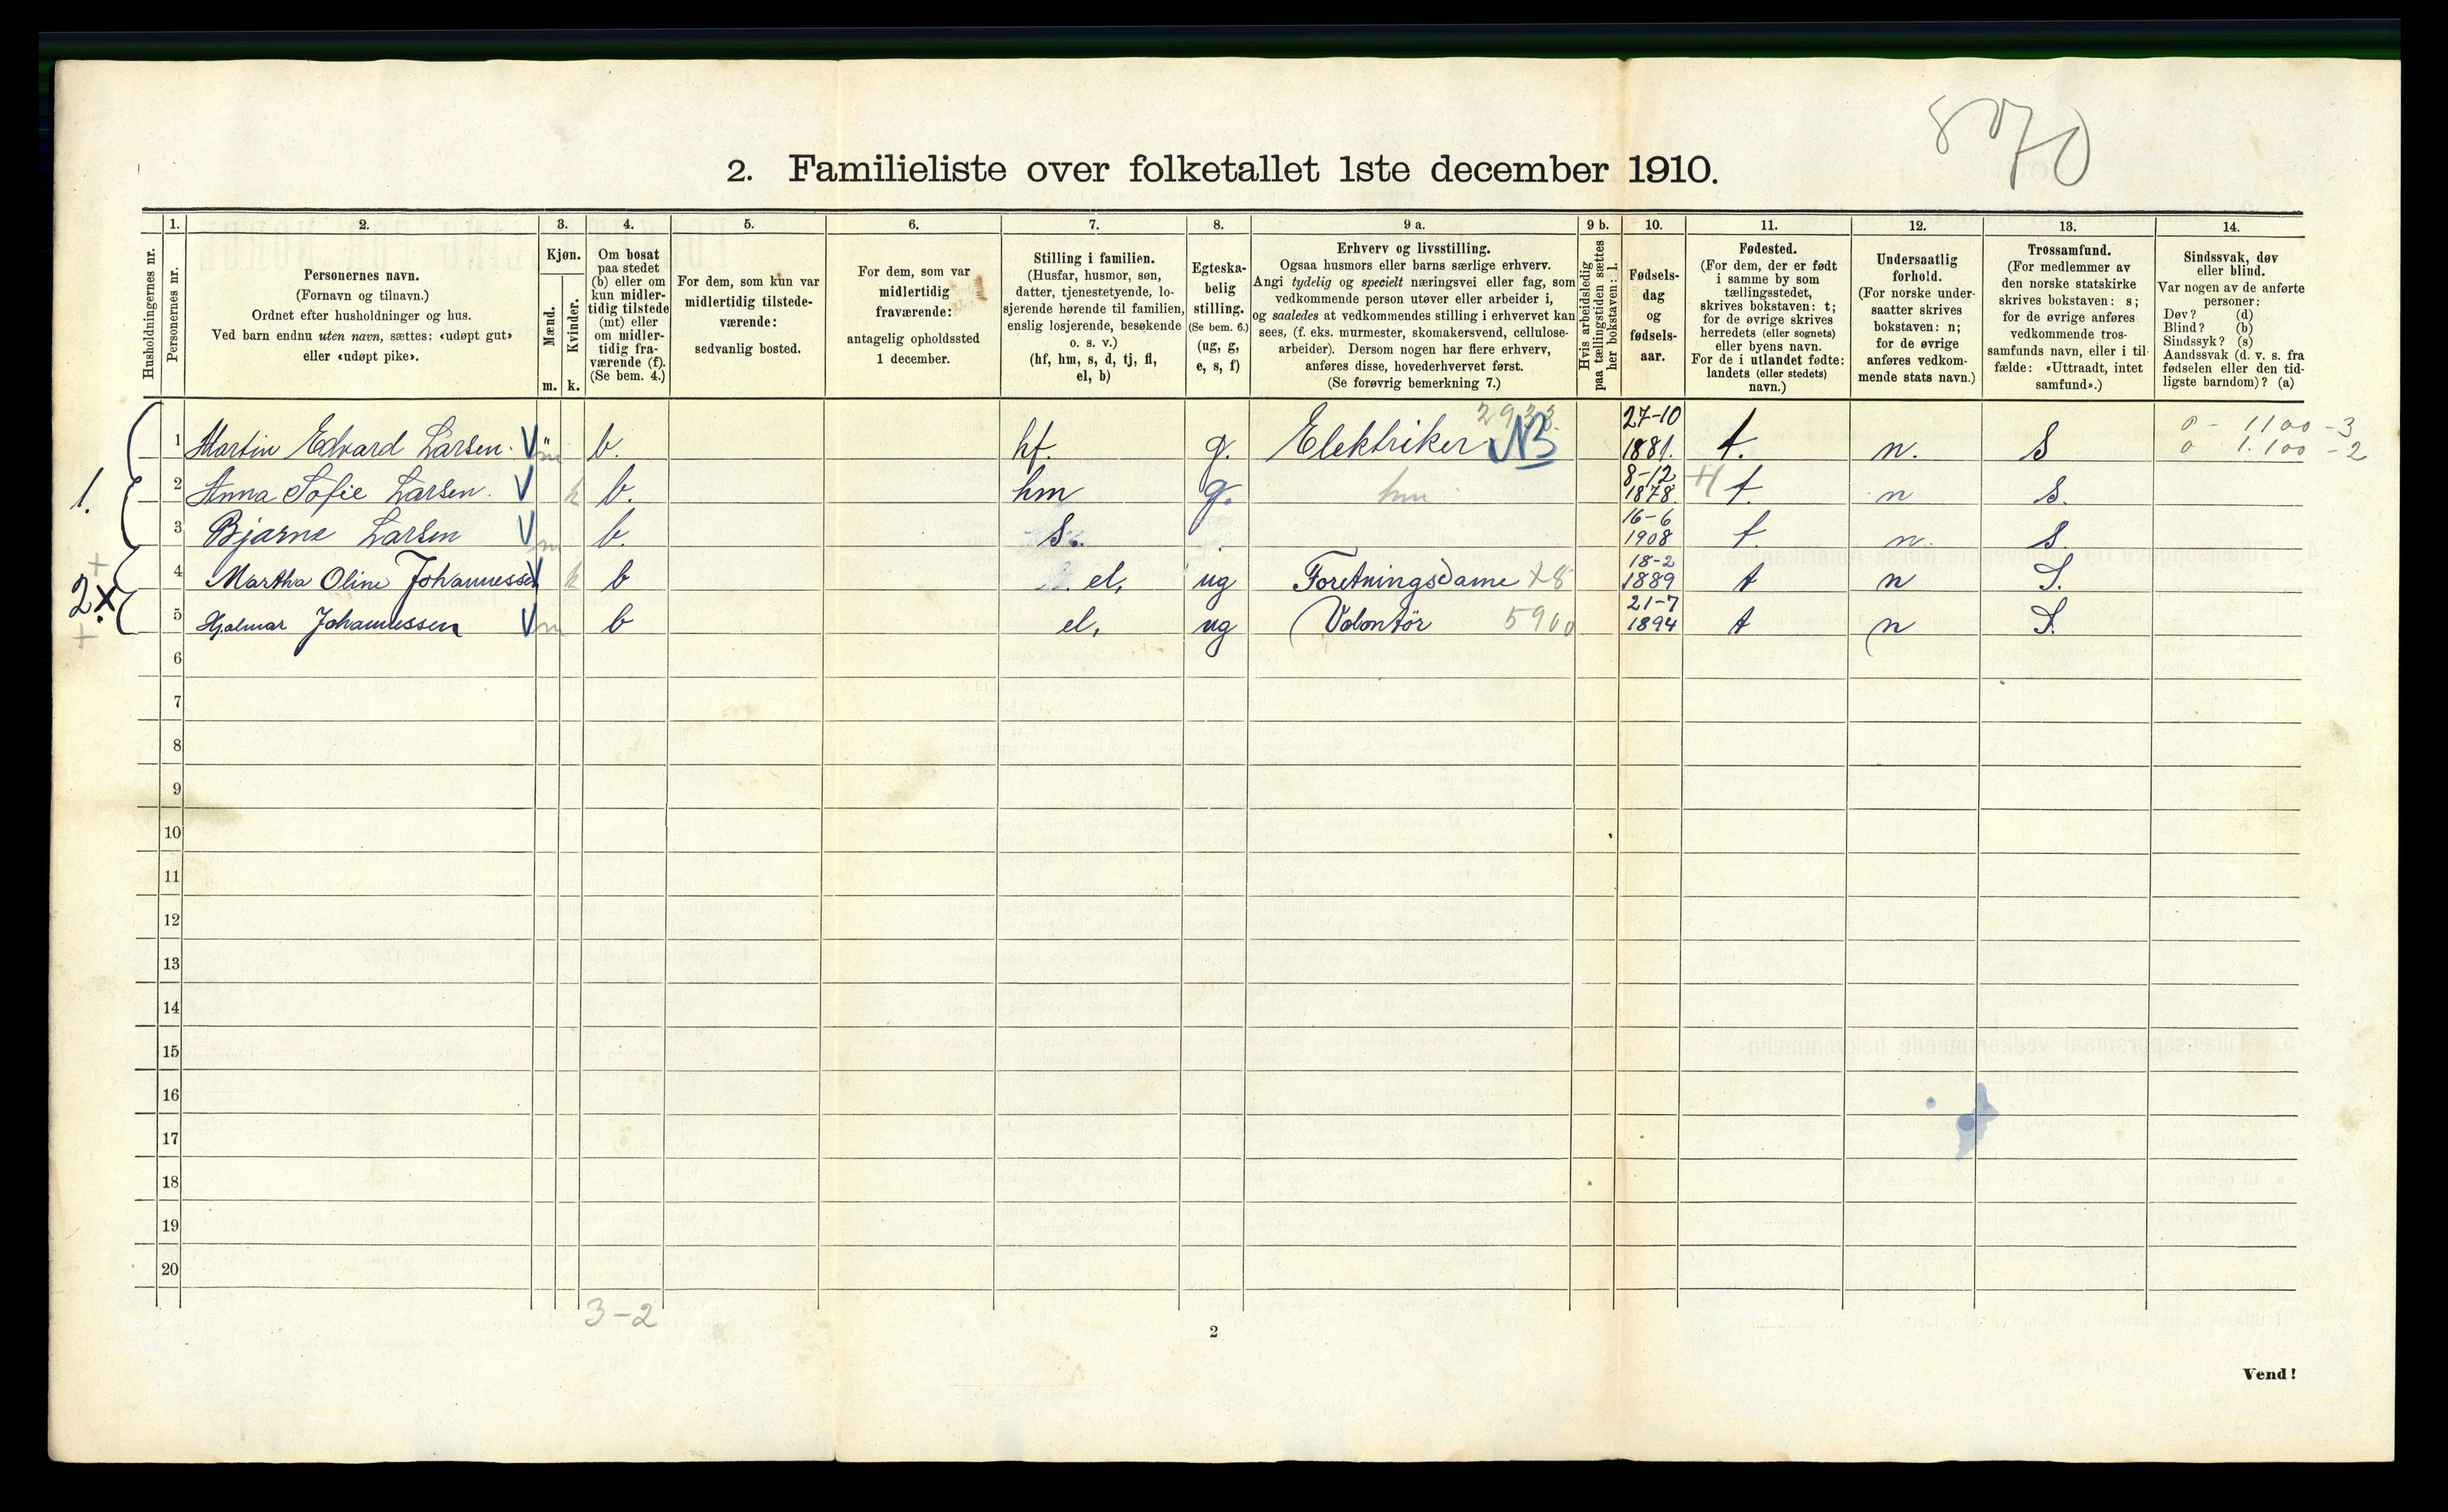 870
2. Familieliste over folketallet 1ste december 1910.
1. 2. 3. 4. 5. 6. 7. 8. 9 a. 9 b. 10. 11. 12. 13. 14.
Husholdningernes nr.
Personernes nr.
Personernes navn.
(Fornavn og tilnavn.)
Ordnet efter husholdninger og hus.
Ved barn endnu uten navn, sættes: «udøpt gut»
eller «udøpt pike».
Kjøn.
Mænd.
Kvinder.
m. k.
Om bosat
paa stedet
(b) eller om
kun midler-
tidig tilstede
(mt) eller
om midler-
tidig fra-
værende (f).
(Se bem. 4.)
For dem, som kun var
midlertidig tilstede-
værende:
sedvanlig bosted.
For dem, som var
midlertidig
fraværende:
antagelig opholdssted
1 december.
Stilling i familien.
(Husfar, husmor, søn,
datter, tjenestetyende, lo-
sjerende hørende til familien,
enslig losjerende, besøkende
o. s. v.)
(hf, hm, s, d, tj, fl,
el, b)
Egteska-
belig
stilling.
(Se bem. 6.)
(ug, g,
e, s, f)
Erhverv og livsstilling.
Ogsaa husmors eller barns særlige erhverv.
Angi tydelig og specielt næringsvei eller fag, som
vedkommende person utøver eller arbeider i,
og saaledes at vedkommendes stilling i erhvervet kan
sees, (f. eks. murmester, skomakersvend, cellulose-
arbeider). Dersom nogen har flere erhverv,
anføres disse, hovederhvervet først.
(Se forøvrig bemerkning 7.)
Hvis arbeidsledig
paa tællingstiden sættes
her bokstaven: l.
Fødsels-
dag
og
fødsels-
aar.
Fødested.
(For dem, der er født
i samme by som
tællingsstedet,
skrives bokstaven: t;
for de øvrige skrives
herredets (eller sognets)
eller byens navn.
For de i utlandet fødte:
landets (eller stedets)
navn.)
Undersaatlig
forhold.
(For norske under-
saatter skrives
bokstaven: n;
for de øvrige
anføres vedkom-
mende stats navn.)
Trossamfund.
(For medlemmer av
den norske statskirke
skrives bokstaven: s;
for de øvrige anføres
vedkommende tros-
samfunds navn, eller i til-
fælde: «Uttraadt, intet
samfund».)
Sindssvak, døv
eller blind.
Var nogen av de anførte
personer:
Døv? (d)
Blind? (b)
Sindssyk? (s)
Aandssvak (d. v. s. fra
fødselen eller den tid-
ligste barndom)? (a)
1. 1 Martin Edvard Larsen. V m b. hf. g. Elektriker NB 27-10 1881. t. n. S 0 - 1100 - 3
0 1.100 - 2
2 Anna Sofie Larsen. V k b. hm g. hm 8-12 1878. t. n s.
3 Bjarne Larsen V m b. s. 16-6 1908 t. n. s.
2. X 4 Martha Oline Johannessen V k b el, ug Foretningsdame X8 18-2 1889 t n S.
5 Hjalmar Johannessen V m b el, ug Volontør 5900 21-7 1894 t n S.
6
7
8
9
10
11
12
13
14
15
16
17
18
19
20
3-2
2
Vend!